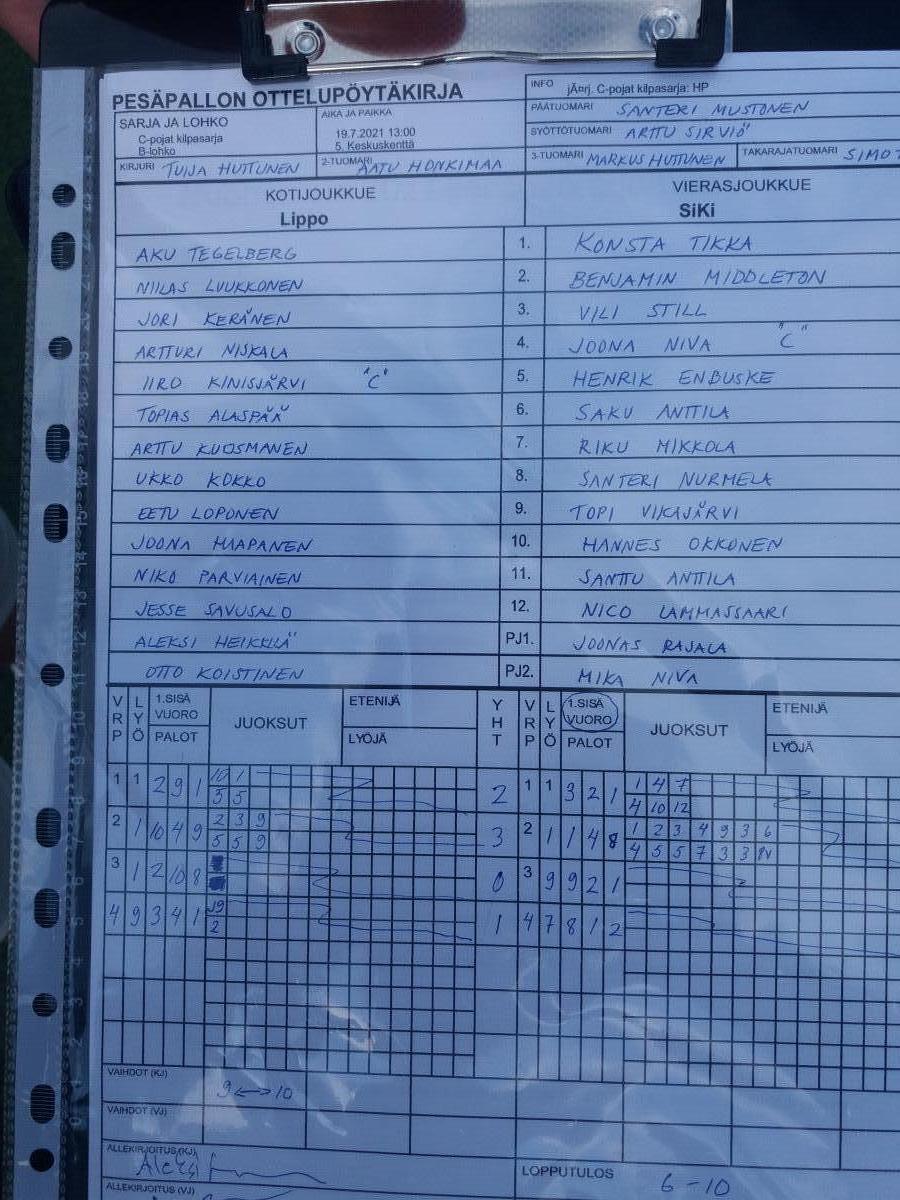 PESÄPALLON OTTELUPÖYTÄKIRJA
INFO jÄnrj. C-pojat kilpasarja: HP
PÄÄTUOMARI SANTERI MUSTONEN
SARJA JA LOHKO
C-pojat kilpasarja
B-lohko
AIKA JA PAIKKA
19.7.2021 13:00
5. Keskuskenttä
SYÖTTÖTUOMARI ARTTU SIRVIÖ
KIRJURI TUIJA HUTTUNEN 2-TUOMARI AATU HONKIMAA
3-TUOMARI MARKUS HUTTUNEN TAKARAJATUOMARI SIMO
KOTIJOUKKUE
Lippo
VIERASJOUKKUE
SiKi
AKU TEGELBERG 1. KONSTA TIKKA
NIILAS LUUKKONEN 2. BENJAMIN MIDDLETON
JORI KERÄNEN 3. VILI STILL
ARTTURI NISKALA 4. JOONA NIVA "C"
IIRO KINISJÄRVI "C" 5. HENRIK ENBUSKE
TOPIAS ALASPÄÄ 6. SAKU ANTTILA
ARTTU KUOSMANEN 7. RIKU MIKKOLA
UKKO KOKKO 8. SANTERI NURMELA
EETU LOPONEN 9. TOPI VIKAJÄRVI
JOONA HAAPANEN 10. HANNES OKKONEN
NIKO PARVIAINEN 11. SANTTU ANTTILA
JESSE SAVUSALO 12. NICO LAMMASSAARI
ALEKSI HEIKKILÄ PJ1. JOONAS RAJALA
OTTO KOISTINEN PJ2. MIKA NIVA
VRP LYÖ 1.SISÄ VUORO PALOT JUOKSUT ETENIJÄ LYÖJÄ YHT VRP LYÖ 1.SISÄ VUORO PALOT JUOKSUT ETENIJÄ LYÖJÄ
1 1 2 9 1 10 1 2 1 1 3 2 1 1 4 7
5 5 4 10 12
2 1 10 4 9 2 3 9 3 2 1 1 4 8 1 2 3 4 9 3 6
5 5 9 4 5 5 7 3 3
3 1 2 10 8 0 3 9 9 2 1
4 9 3 4 1 1 4 7 8 1 2
2
VAIHDOT (KJ)
9 <-> 10
VAIHDOT (VJ)
ALLEKIRJOITUS(KJ)
LOPPUTULOS 6 - 10
ALLEKIRJOITUS (VJ)